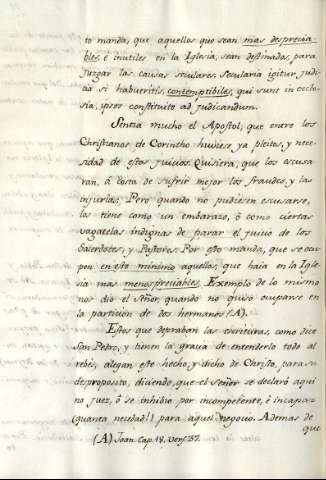 to manda, que aquellos que sean mas despreciа-
bles é inutiles en la Iglesia, sean destinados, para
juzgar las causas seculares. Secularia igitur judi-
cia si habueritis, contemptibiles, qui sunt in eccle-
sia, ipsos constituite ad judicandum.
Sentia mucho el Apostol, que entre los
Christianos de Corintho huviese, ya pleitos, y nece-
sidad de estos juicios. Quisiera, que los escusa-
ran, á costa de sufrir mejor los fraudes, y las
injurias. Pero quando no pudiesen escusarse,
los tiene como un embarazo, ó como ciertas
vagatelas indignas de parar el juicio de los
Sacerdotes, y Pastores. Por esto manda, que se ocu-
pen en esto minimo aquellos, que haia en la Igle-
sia mas menospreciables. Exemplo de lo mismo
nos dió el Señor, quando no quiso ocuparse en
la particion de dos hermanos (A).
Estos que depraban las escrituras, como dice
San Pedro, y tienen la gracia de entenderlo todo al
rebés, alegan este hecho, y dicho de Christo, para su
desproposito, diciendo, que el Señor se declaró aqui
no juez, ó se inhibio por incompetente, é incapaz
(quanta necedad!) para aquel negocio. Ademas de
que
(A) Joan. Cap. 18. Vers. 37.